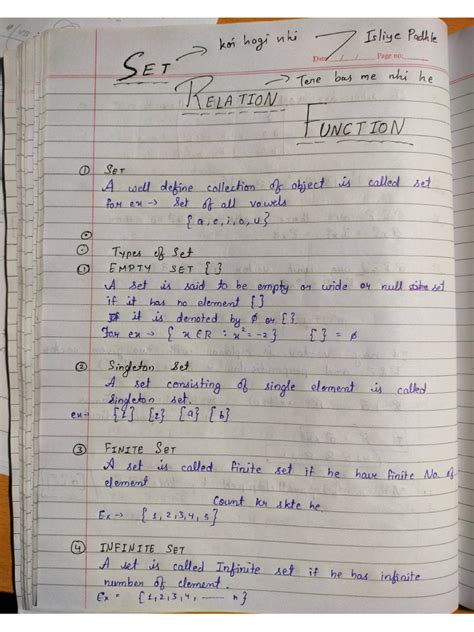 SET → koi hogi nhi } Isliye Padhle
Date / / Page no:
RELATION → Tere bas me nhi he
FUNCTION
① SET
A well define collection of object is called set
for ex → Set of all vowels
{a, e, i, o, u}
Types of Set
① EMPTY SET { }
A set is said to be empty or wide or null set
if it has no element { }
it is denoted by ø or { }
For ex → { x ∈ R : x² = -2 } { } = ø
② Singleton Set
A set consisting of single element is called
singleton set.
ex → {1} {2} {a} {b}
③ FINITE SET
A set is called finite set if he have finite No. of
element
Count kr skte he.
Ex → {1, 2, 3, 4, 5}
④ INFINITE SET
A set is called Infinite set if he has infinite
number of element.
Ex = {1, 2, 3, 4, ---- n}